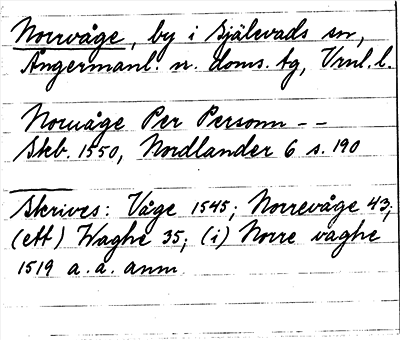 Norrvåge, by i Själevads sn,
Ångermanl. n. doms. tg, Vrnl. l.
Noruåge Per Personn - -
Skb. 1550, Nordlander 6 s. 190
Skrives: Våge 1545; Norrevåge 43;
(ett) Waghe 35; (i) Norre vaghe
1519 a. a. anm.